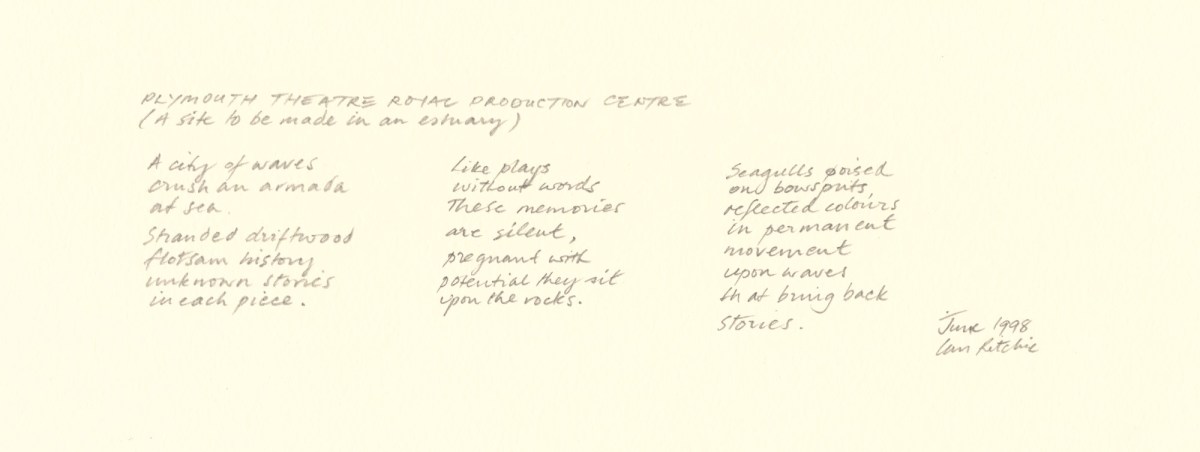 PLYMOUTH THEATRE ROYAL PRODUCTION CENTRE
(A site to be made in an estuary)
A city of waves
crush an armada
at sea.
Stranded driftwood
flotsam history
unknown stories
in each piece.
Like plays
without words
These memories
are silent,
pregnant with
potential they sit
upon the rocks.
Seagulls poised
on bowsprits,
reflected colours
in permanent
movement
upon waves
that bring back
stories.
June 1998
Ian Ritchie